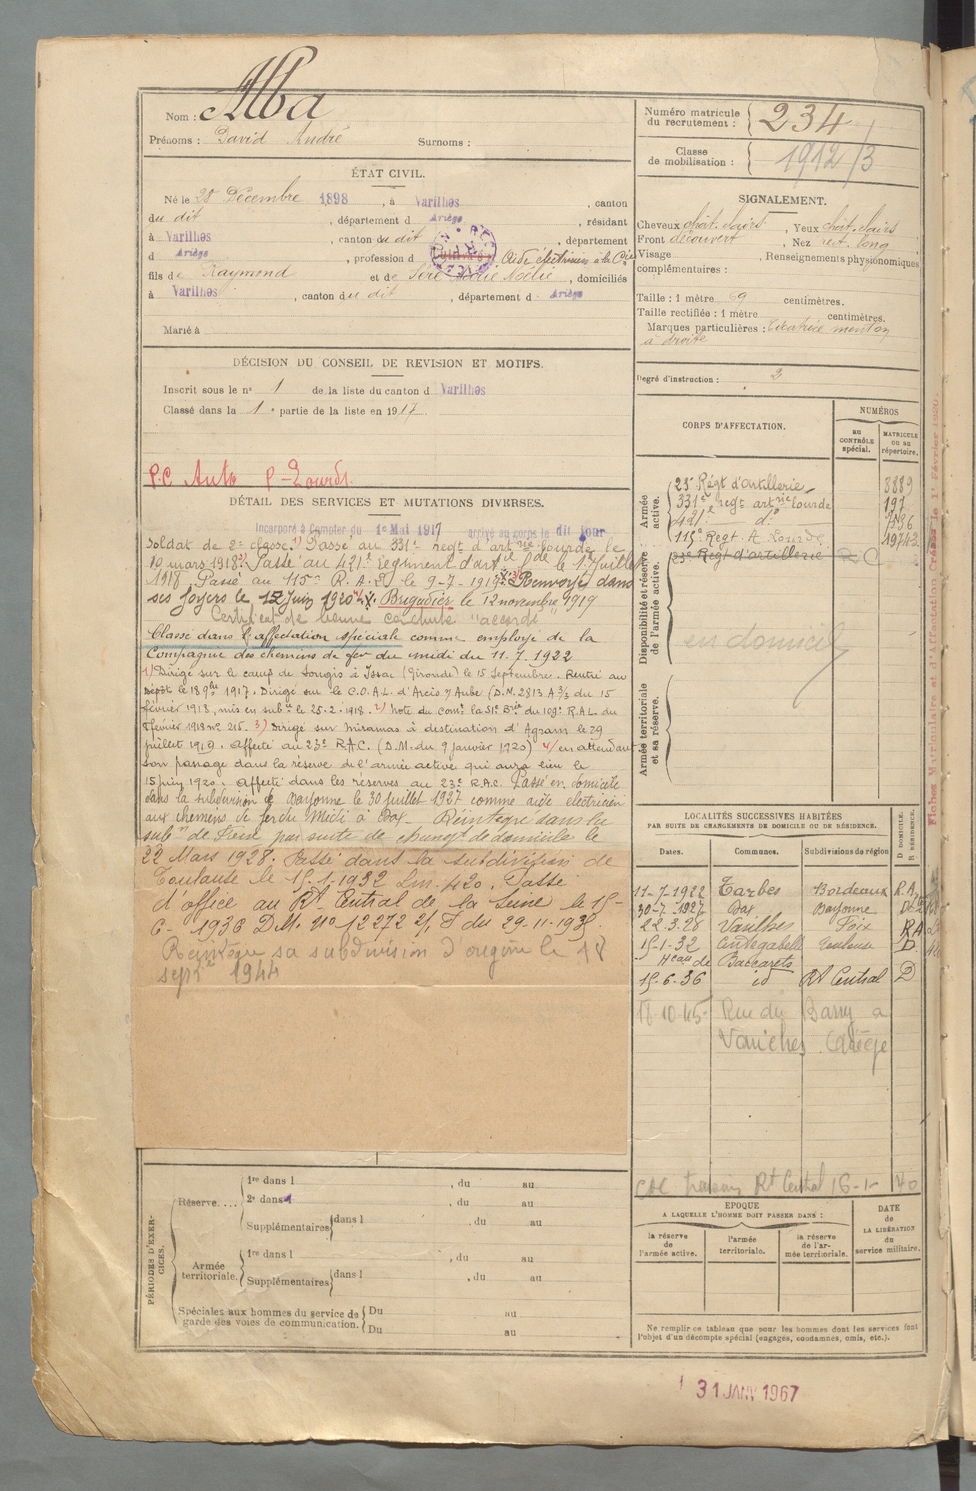 Nom : Alba
Prénoms : David André Surnoms :
Numéro matricule du recrutement : 234
Classe de mobilisation : 1912/3
ÉTAT CIVIL.
Né le 28 Décembre 1898, à Varilhes, canton
du dit, département d Ariège, résidant
à Varilhes, canton du dit, département
d Ariège, profession d Aide électricien à la Cie
fils de Raymond et de Marie Noélie, domiciliés
à Varilhes, canton du dit, département d Ariège
Marié à
SIGNALEMENT.
Cheveux chat. clairs, Yeux chat. clairs
Front découvert, Nez rect. long
Visage Renseignements physionomiques
complémentaires :
Taille : 1 mètre 69 centimètres.
Taille rectifiée : 1 mètre centimètres.
Marques particulières : Cicatrice menton
à droite
Degré d'instruction : 3
DÉCISION DU CONSEIL DE REVISION ET MOTIFS.
Inscrit sous le n° 1 de la liste du canton d Varilhes
Classé dans la 1e partie de la liste en 1917
P.C Auto P-Lourds.
DÉTAIL DES SERVICES ET MUTATIONS DIVERSES.
Incorporé à Compter du 1er Mai 1917 arrivé au corps le dit jour
Soldat de 2e classe. 1) Passé au 331e regt d'artrie lourde le
10 mars 1918. 2) Passé au 421e régiment d'artie lde le 1er Juillet
1918. Passé au 115e R.A.L le 9-7-1919. 3) Renvoyé dans
ses foyers le 12 Juin 1920 4). Brigadier le 12 novembre 1919
Certificat de bonne conduite "accordé"
Classé dans l'affectation spéciale comme employé de la
Compagnie des chemins de fer du midi du 11.7.1922
1) Dirigé sur le camp de Songis à Issac (Gironde) le 15 Septembre. Rentré au
dépôt le 18 9bre 1917. Dirigé sur le C.O.A.L. d'Arcis s/ Aube (D.M. 2813 A 3/3 du 15
février 1918, mis en subce le 25-2-1918. 2) Note du Comt la 51e Brie du 109e R.A.L. du
février 1918 n° 215. 3) Dirigé sur Miramas à destination d'Agram le 29
juillet 1919. Affecté au 23e R.A.C. (D.M. du 9 janvier 1920) 4) en attendant
son passage dans la réserve de l'armée active qui aura lieu le
15 juin 1920. Affecté dans les réserves au 23e R.A.C. Passé en domicile
dans la subdivision de Bayonne le 30 Juillet 1927 comme aide électricien
aux chemins de fer du Midi à Dax. Réintégré dans la
subon de Foix par suite de changt de domicile le
22 Mars 1928. Passé dans la subdivision de
Toulouse le 15-1-1932 Lm. 420. Passé
d'office au Rt Central de la Seine le 15-
6-1936 D.M. N° 12272 2/ F du 29-11-1935.
Réintégré sa subdivision d'origine le 18
septe 1944
CORPS D'AFFECTATION.
NUMÉROS
au CONTRÔLE spécial.
MATRICULE ou au répertoire.
Armée active.
25e Régt d'artillerie 8889
331e regt artrie lourde 197
421e do 7536
115e Regt A Lourde 19742
Disponibilité et réserve de l'armée active.
23e Regt d'artillerie
en domicile
Armée territoriale et sa réserve.
LOCALITÉS SUCCESSIVES HABITÉES
PAR SUITE DE CHANGEMENTS DE DOMICILE OU DE RÉSIDENCE.
Dates. Communes. Subdivisions de région D DOMICILE. R RÉSIDENCE.
11-7-1922 Tarbes Bordeaux R.A.
30-7-1927 Dax Bayonne D
22-3-28 Varilhes Foix RA
15-1-32 Cintegabelle Toulouse D
Heau de Baccarets
15-6-36 id Rt Central D
18-10-45 Rue du Barry à
Varilhes (Ariège
Rt Central 16-1-40
EPOQUE
A LAQUELLE L'HOMME DOIT PASSER DANS :
la réserve de l'armée active.
l'armée territoriale.
la réserve de l'armée territoriale.
DATE de LA LIBÉRATION du service militaire.
Ne remplir ce tableau que pour les hommes dont les services font
l'objet d'un décompte spécial (engagés, condamnés, omis, etc.).
PÉRIODES D'EXERCICES.
Réserve....
1re dans l , du au
2e dans l , du au
Supplémentaires dans l , du au
Armée territoriale.
1re dans l , du au
Supplémentaires dans l , du au
Spéciales aux hommes du service de garde des voies de communication.
Du au
Du au
31 JANV 1967